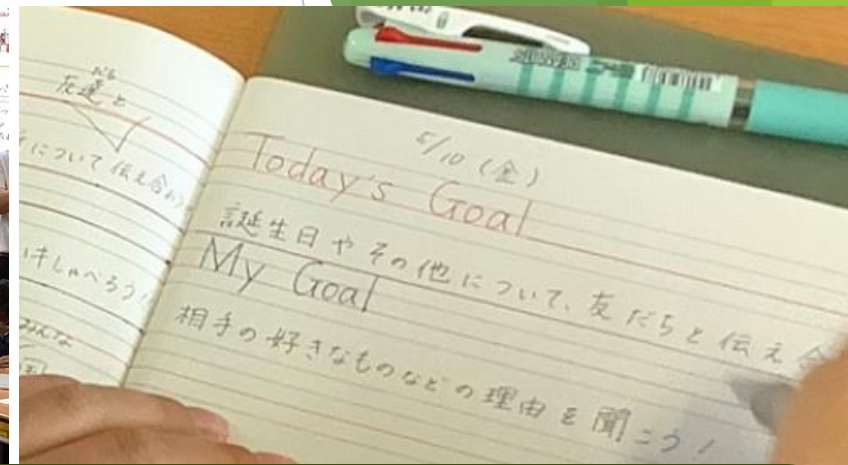 友達と
だち
について伝え合お
しゃべろう!
みんな
5/10(金)
Today's Goal
誕生日やその他について、友だちと伝え合
My Goal
相手の好きなものなどの理由を聞こう!